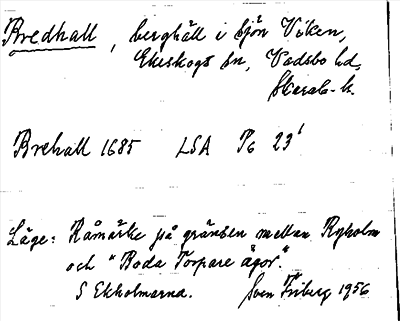 Bredhall, berghäll i sjön Viken,
Ekeskogs sn, Vadsbo hd,
Skarab. l.
Brehall 1685 LSA P6 23¹
Läge: Råmärke på gränsen mellan Ryholm
och "Boda Torpare ägor".
S Ekholmarna. Sven Friberg 1956